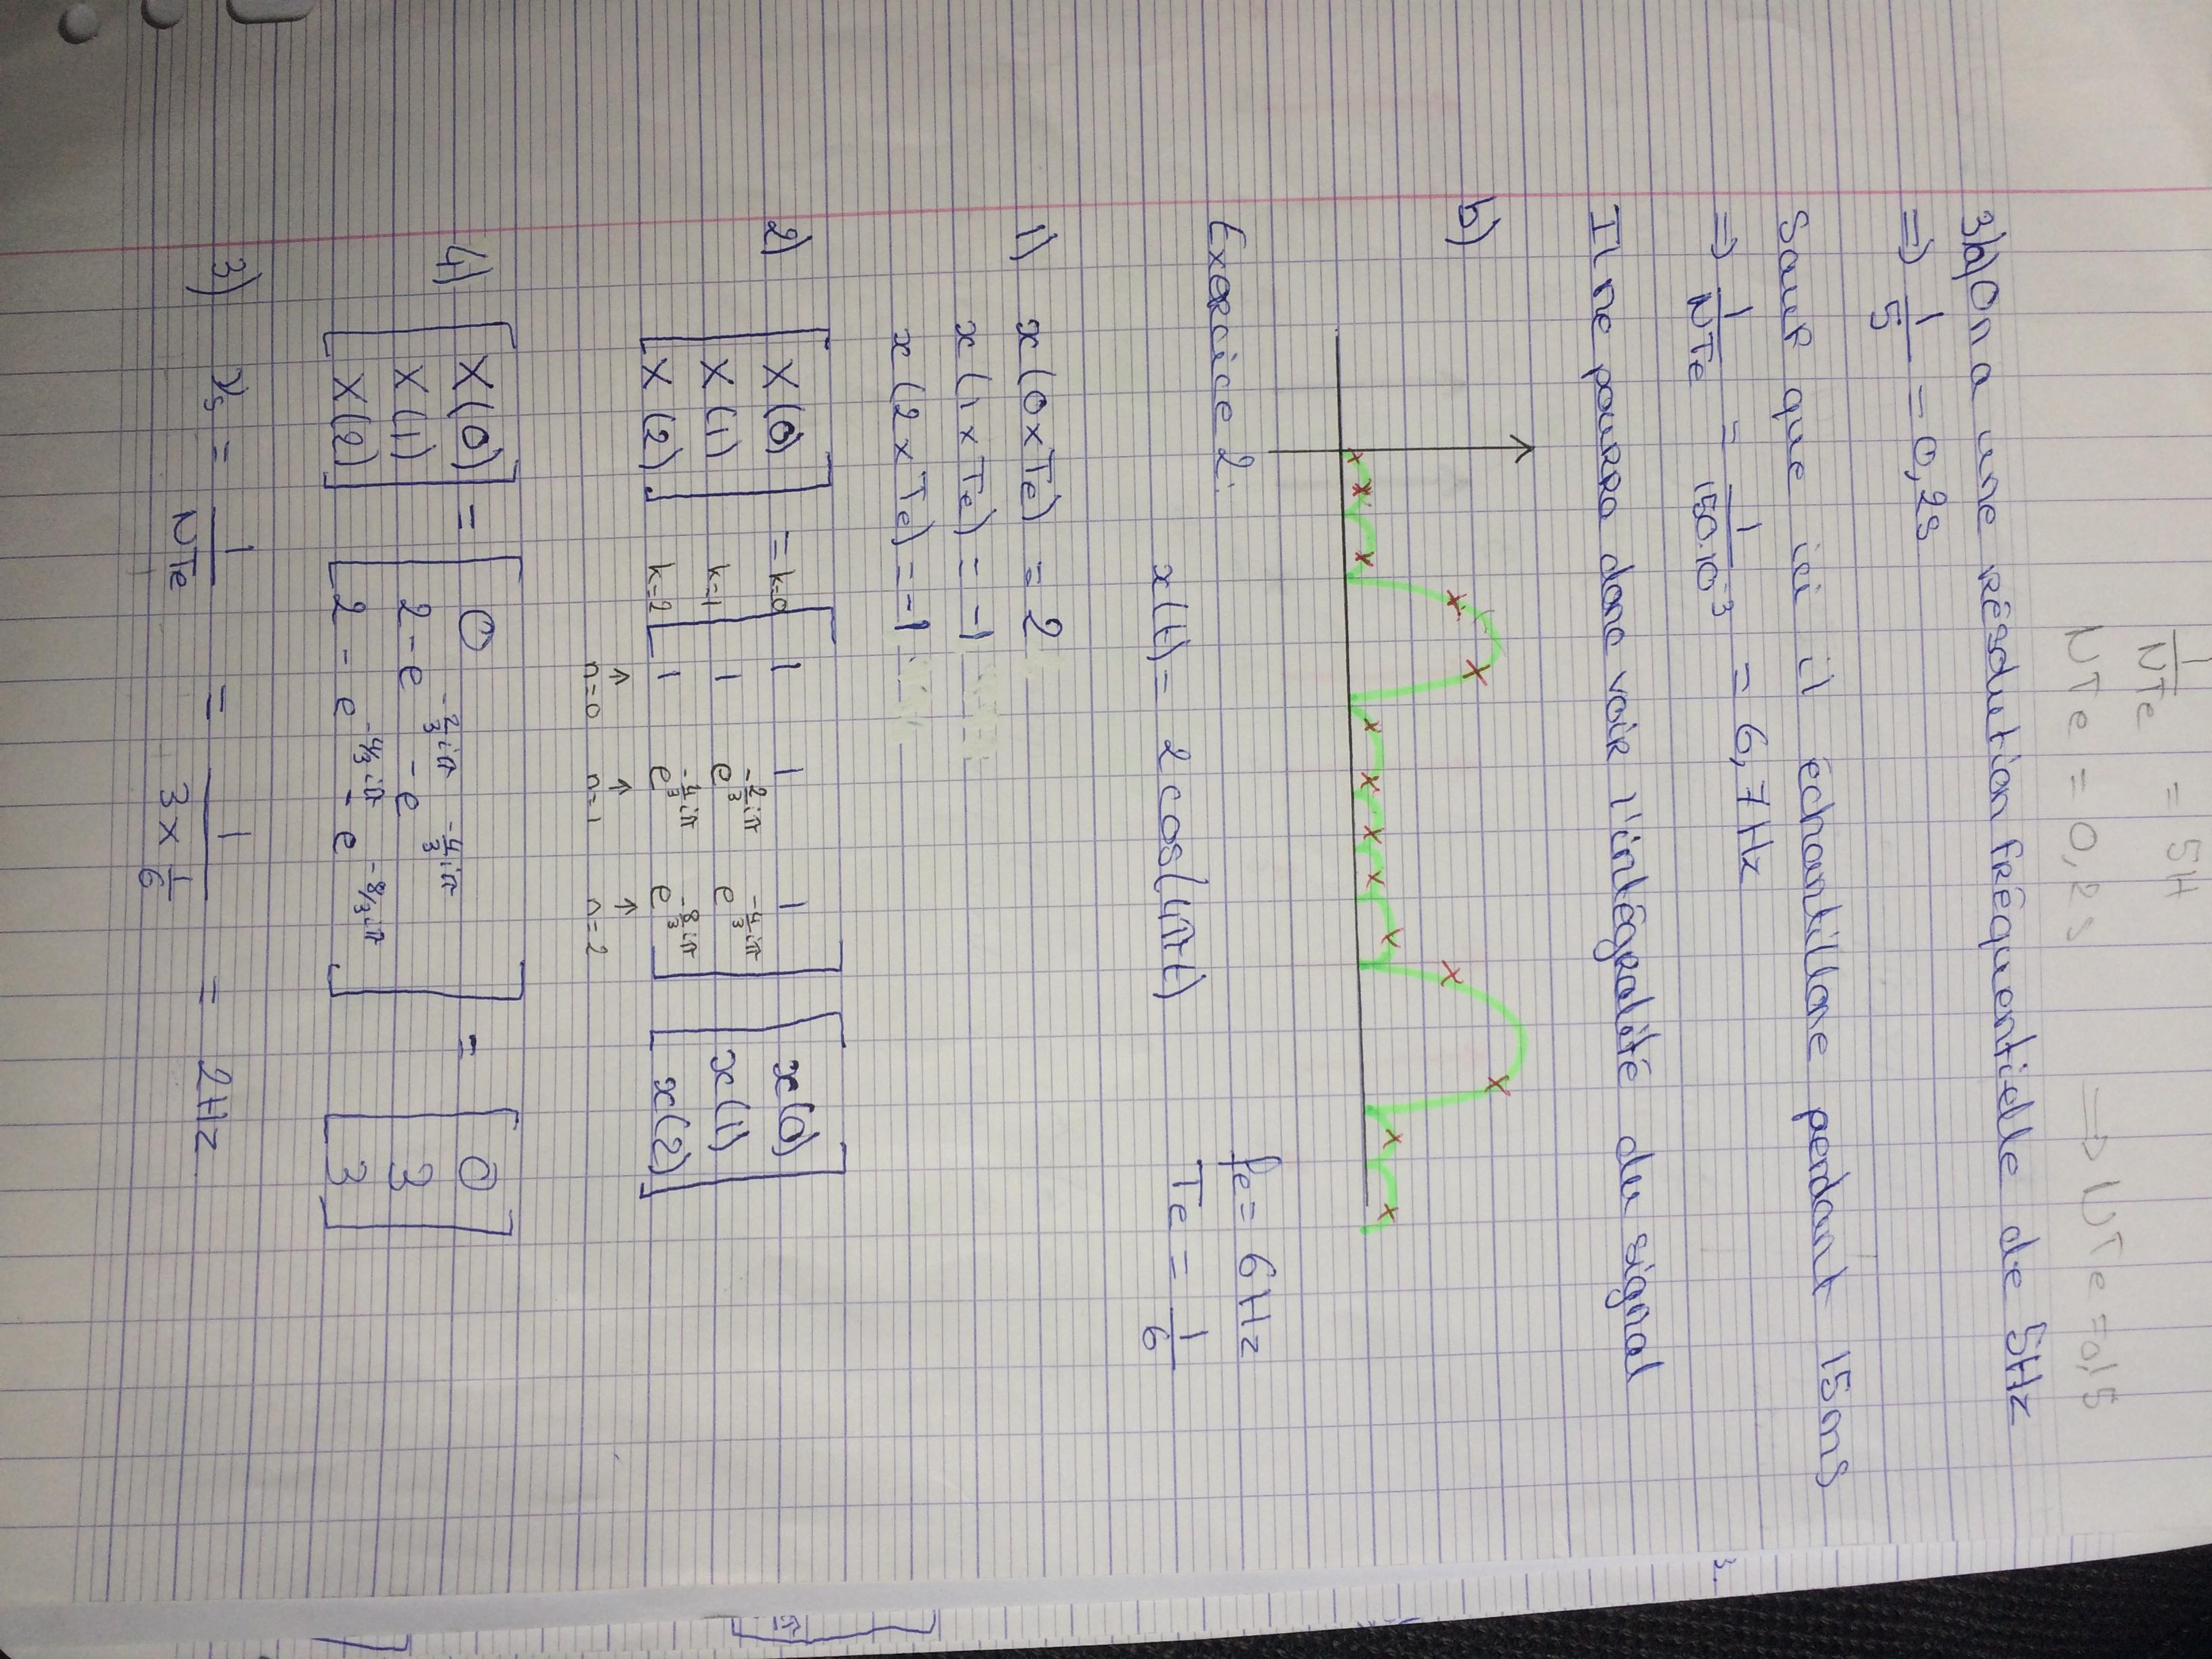 1/NTe = 5H
NTe = 0,2s ⇒ NTe = 0,15
3)a) On a une résolution fréquentielle de 5Hz
⇒ 1/5 = 0,2s
Sauf que ici il échantillone pendant 15ms
⇒ 1/NTe = 1/150.10⁻³ = 6,7Hz
Il ne pourra donc voir l'intégralité du signal
b)
Exercice 2:
fe = 6Hz
x(t) = 2cos(4πt)
Te = 1/6
1) x(0×Te) = 2
x(1×Te) = -1
x(2×Te) = -1
2) [X(0)] = k=0 [1 1 1] [x(0)]
[X(1)] k=1 [1 e^(-2/3 iπ) e^(-4/3 iπ)] [x(1)]
[X(2)] k=2 [1 e^(-4/3 iπ) e^(-8/3 iπ)] [x(2)]
↑ ↑ ↑
n=0 n=1 n=2
4) [X(0)] = [0] = [0]
[X(1)] [2-e^(-2/3 iπ) -e^(-4/3 iπ)] [3]
[X(2)] [2-e^(-4/3 iπ) -e^(-8/3 iπ)] [3]
3) νs = 1/NTe = 1/(3×1/6) = 2Hz
3.